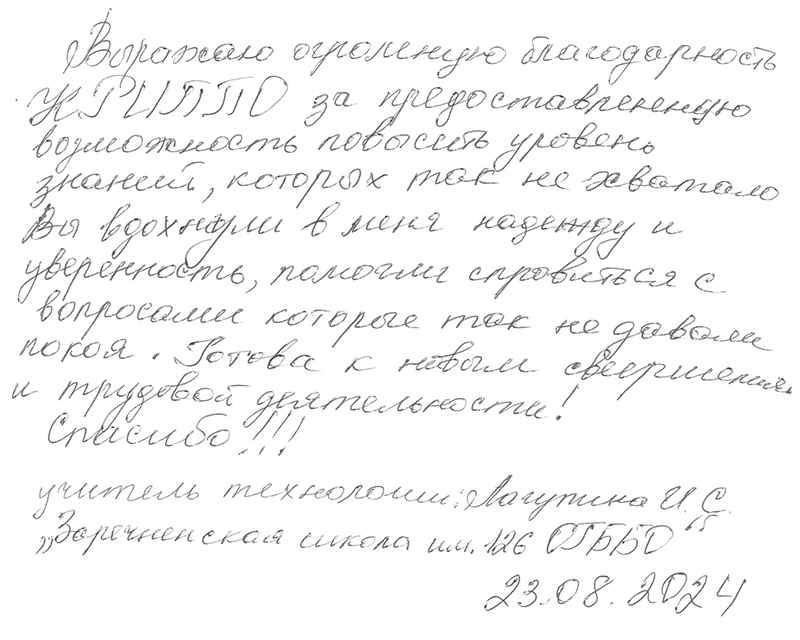 Выражаю огромную благодарность
КРИППО за предоставленную
возможность повысить уровень
знаний, которых так не хватало
Вы вдохнули в меня надежду и
уверенность, помогли справиться с
вопросами которые так не давали
покоя. Готова к новым свершениям
и трудовой деятельности!
Спасибо!!!
учитель технологии: Лагутина И.С.
„Заречненская школа им. 126 ОГББО"
23.08.2024